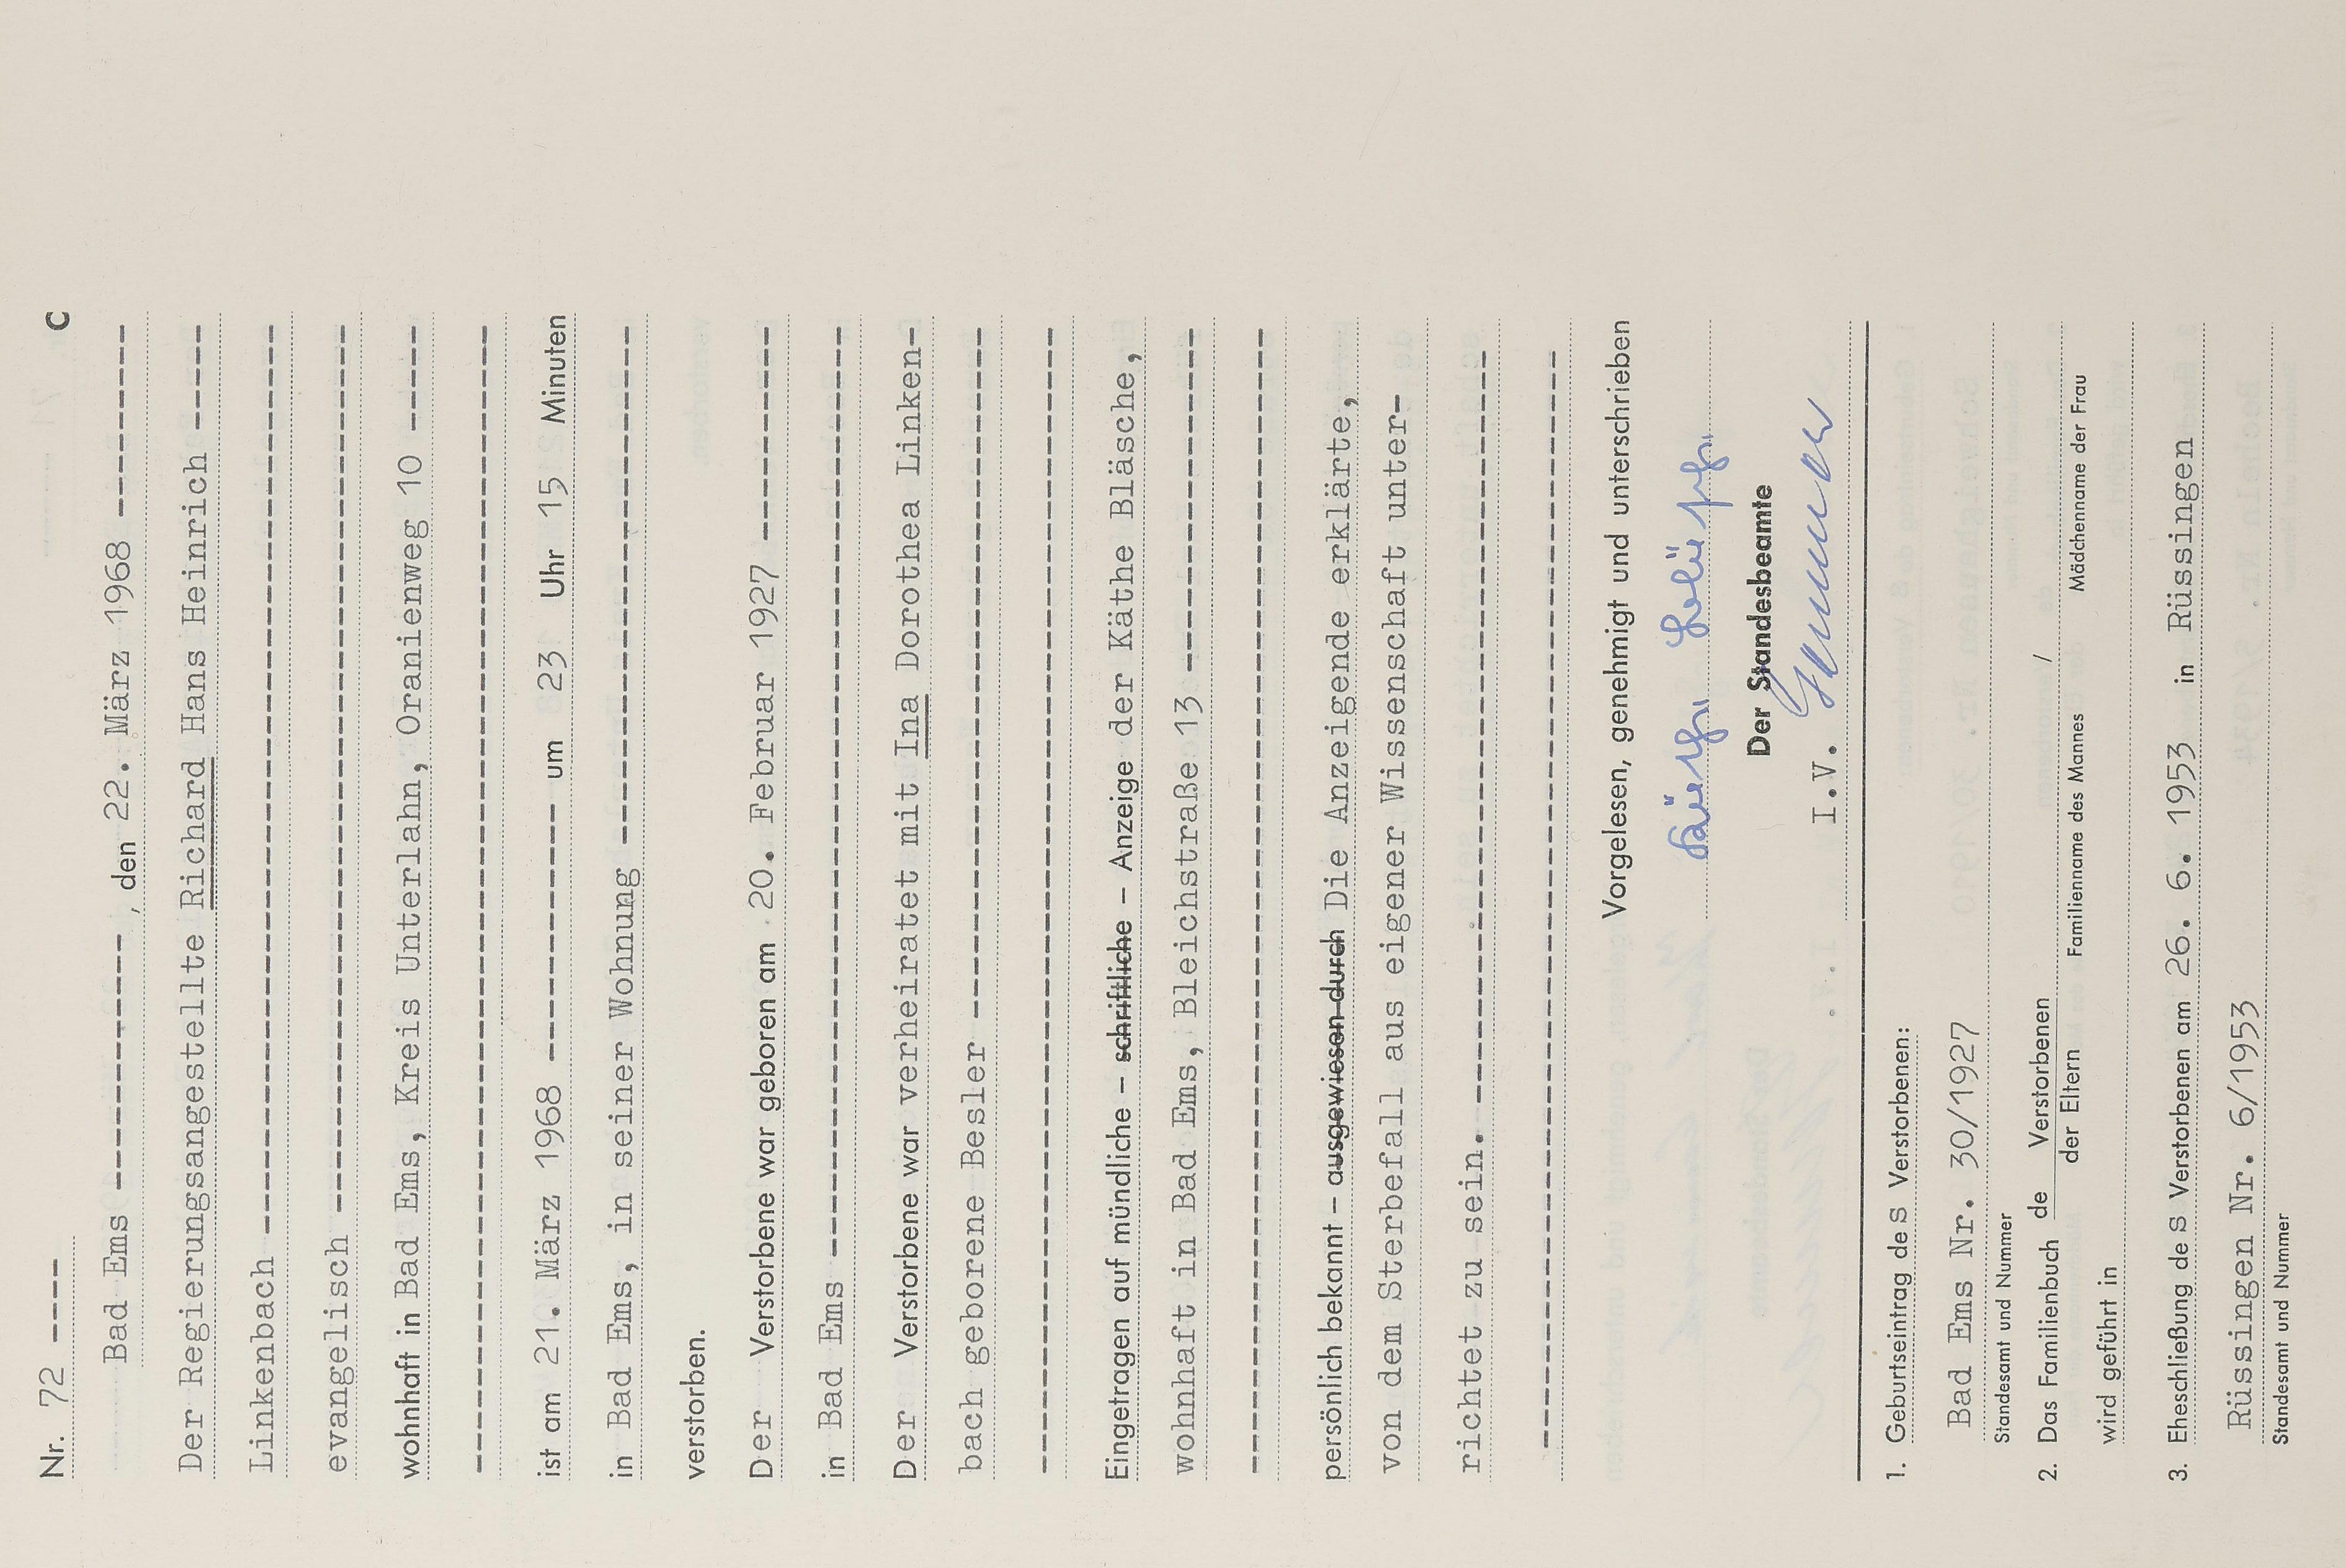 Nr. 72 ---- C
Bad Ems ------------, den 22. März 1968 ---------
Der Regierungsangestellte Richard Hans Heinrich -----
Linkenbach --------------------------------------------
evangelisch --------------------------------------------
wohnhaft in Bad Ems, Kreis Unterlahn, Oranienweg 10 -----
-------------------------------------------------------
ist am 21. März 1968 ------------ um 23 Uhr 15 Minuten
in Bad Ems, in seiner Wohnung -------------------------
verstorben.
Der Verstorbene war geboren am 20. Februar 1927 ----------
in Bad Ems --------------------------------------------
Der Verstorbene war verheiratet mit Ina Dorothea Linken-
bach geborene Besler ---------------------------------
-------------------------------------------------------
Eingetragen auf mündliche – schriftliche – Anzeige der Käthe Bläsche,
wohnhaft in Bad Ems, Bleichstraße 13 -----------------
-------------------------------------------------------
persönlich bekannt – ausgewiesen durch Die Anzeigende erklärte,
von dem Sterbefall aus eigener Wissenschaft unter-
richtet zu sein. --------------------------------------
-------------------------------------------------------
Vorgelesen, genehmigt und unterschrieben
Käthe Bläsche
Der Standesbeamte
I.V.
1. Geburtseintrag des Verstorbenen:
Bad Ems Nr. 30/1927
Standesamt und Nummer
2. Das Familienbuch de Verstorbenen /
der Eltern Familienname des Mannes Mädchenname der Frau
wird geführt in
3. Eheschließung des Verstorbenen am 26. 6. 1953 in Rüssingen
Rüssingen Nr. 6/1953
Standesamt und Nummer